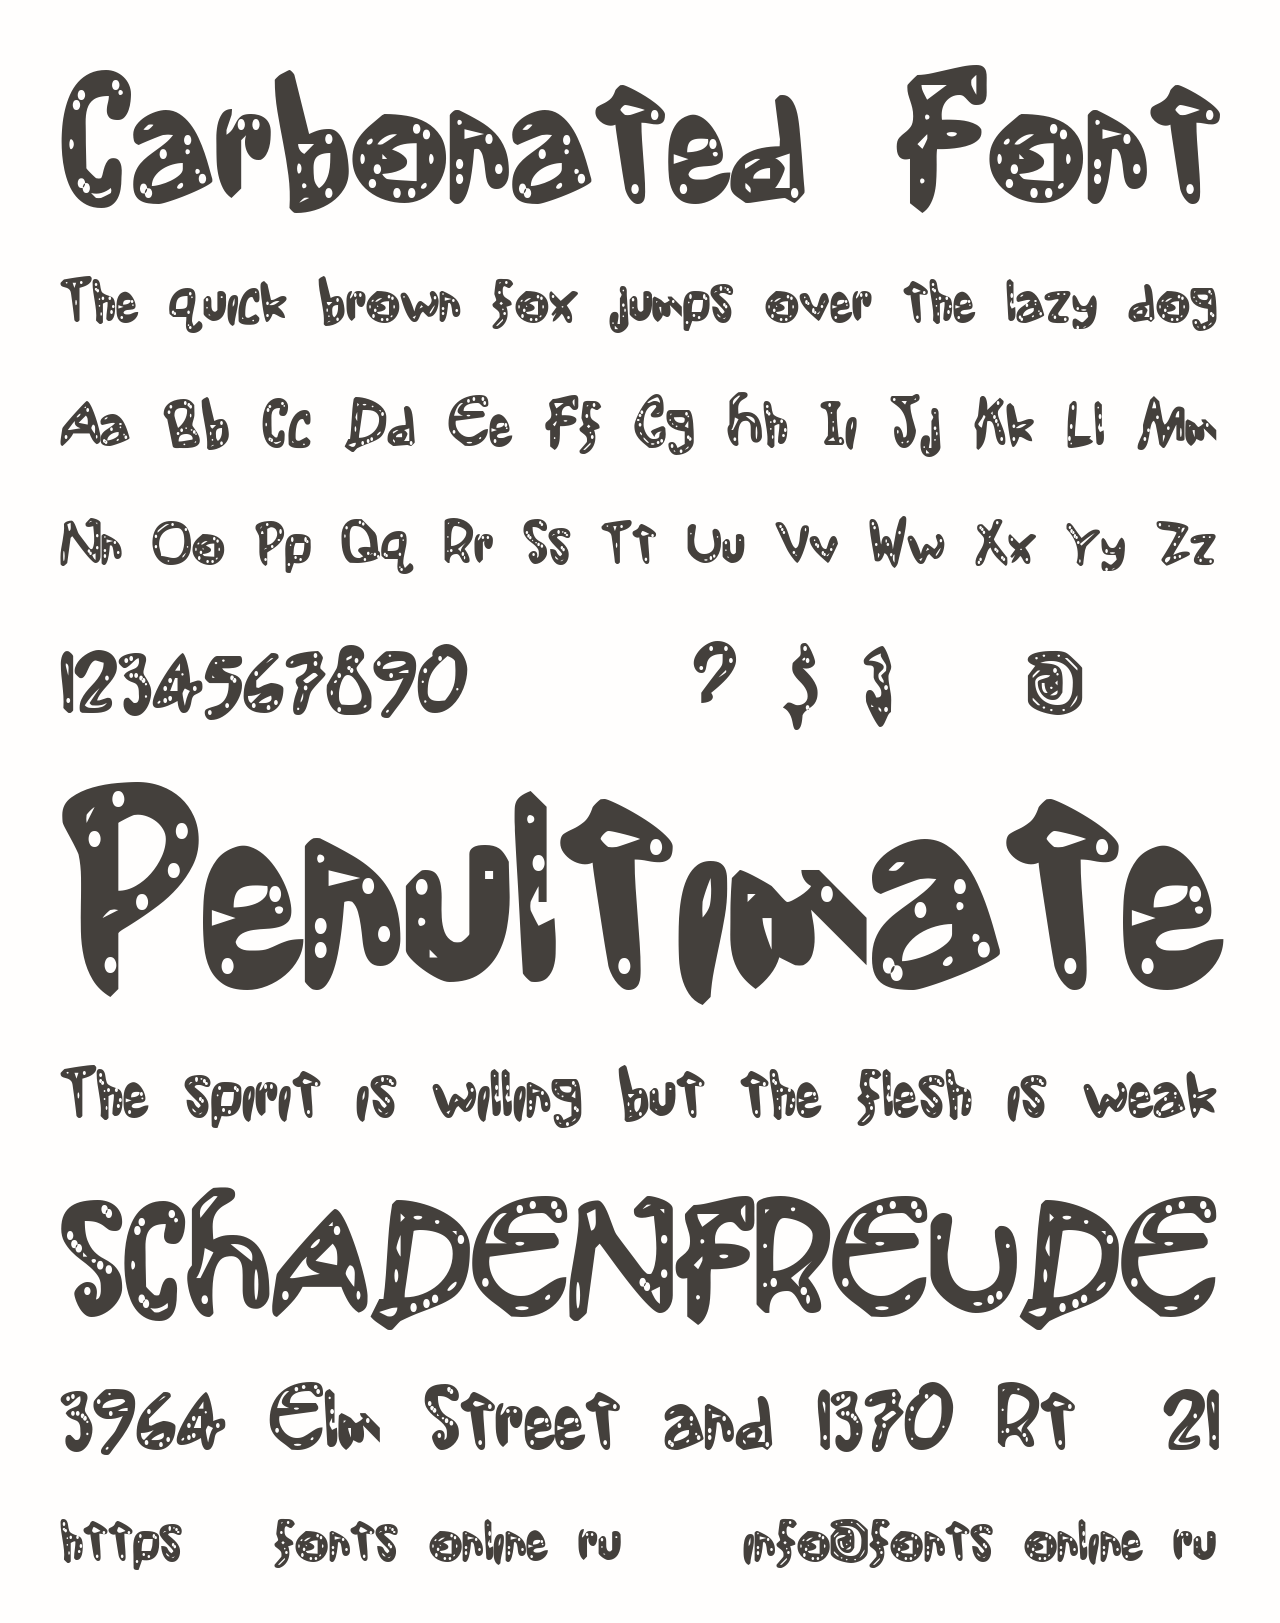 Carbonated Font
The quick brown fox jumps over the lazy dog
Aa Bb Cc Dd Ee Ff Gg Hh Ii Jj Kk Ll Mm
Nn Oo Pp Qq Rr Ss Tt Uu Vv Ww Xx Yy Zz
1234567890 ? $ } @
Penultimate
The spirit is willing but the flesh is weak
SCHADENFREUDE
3964 Elm Street and 1370 Rt 21
https fonts online ru info@fonts online ru